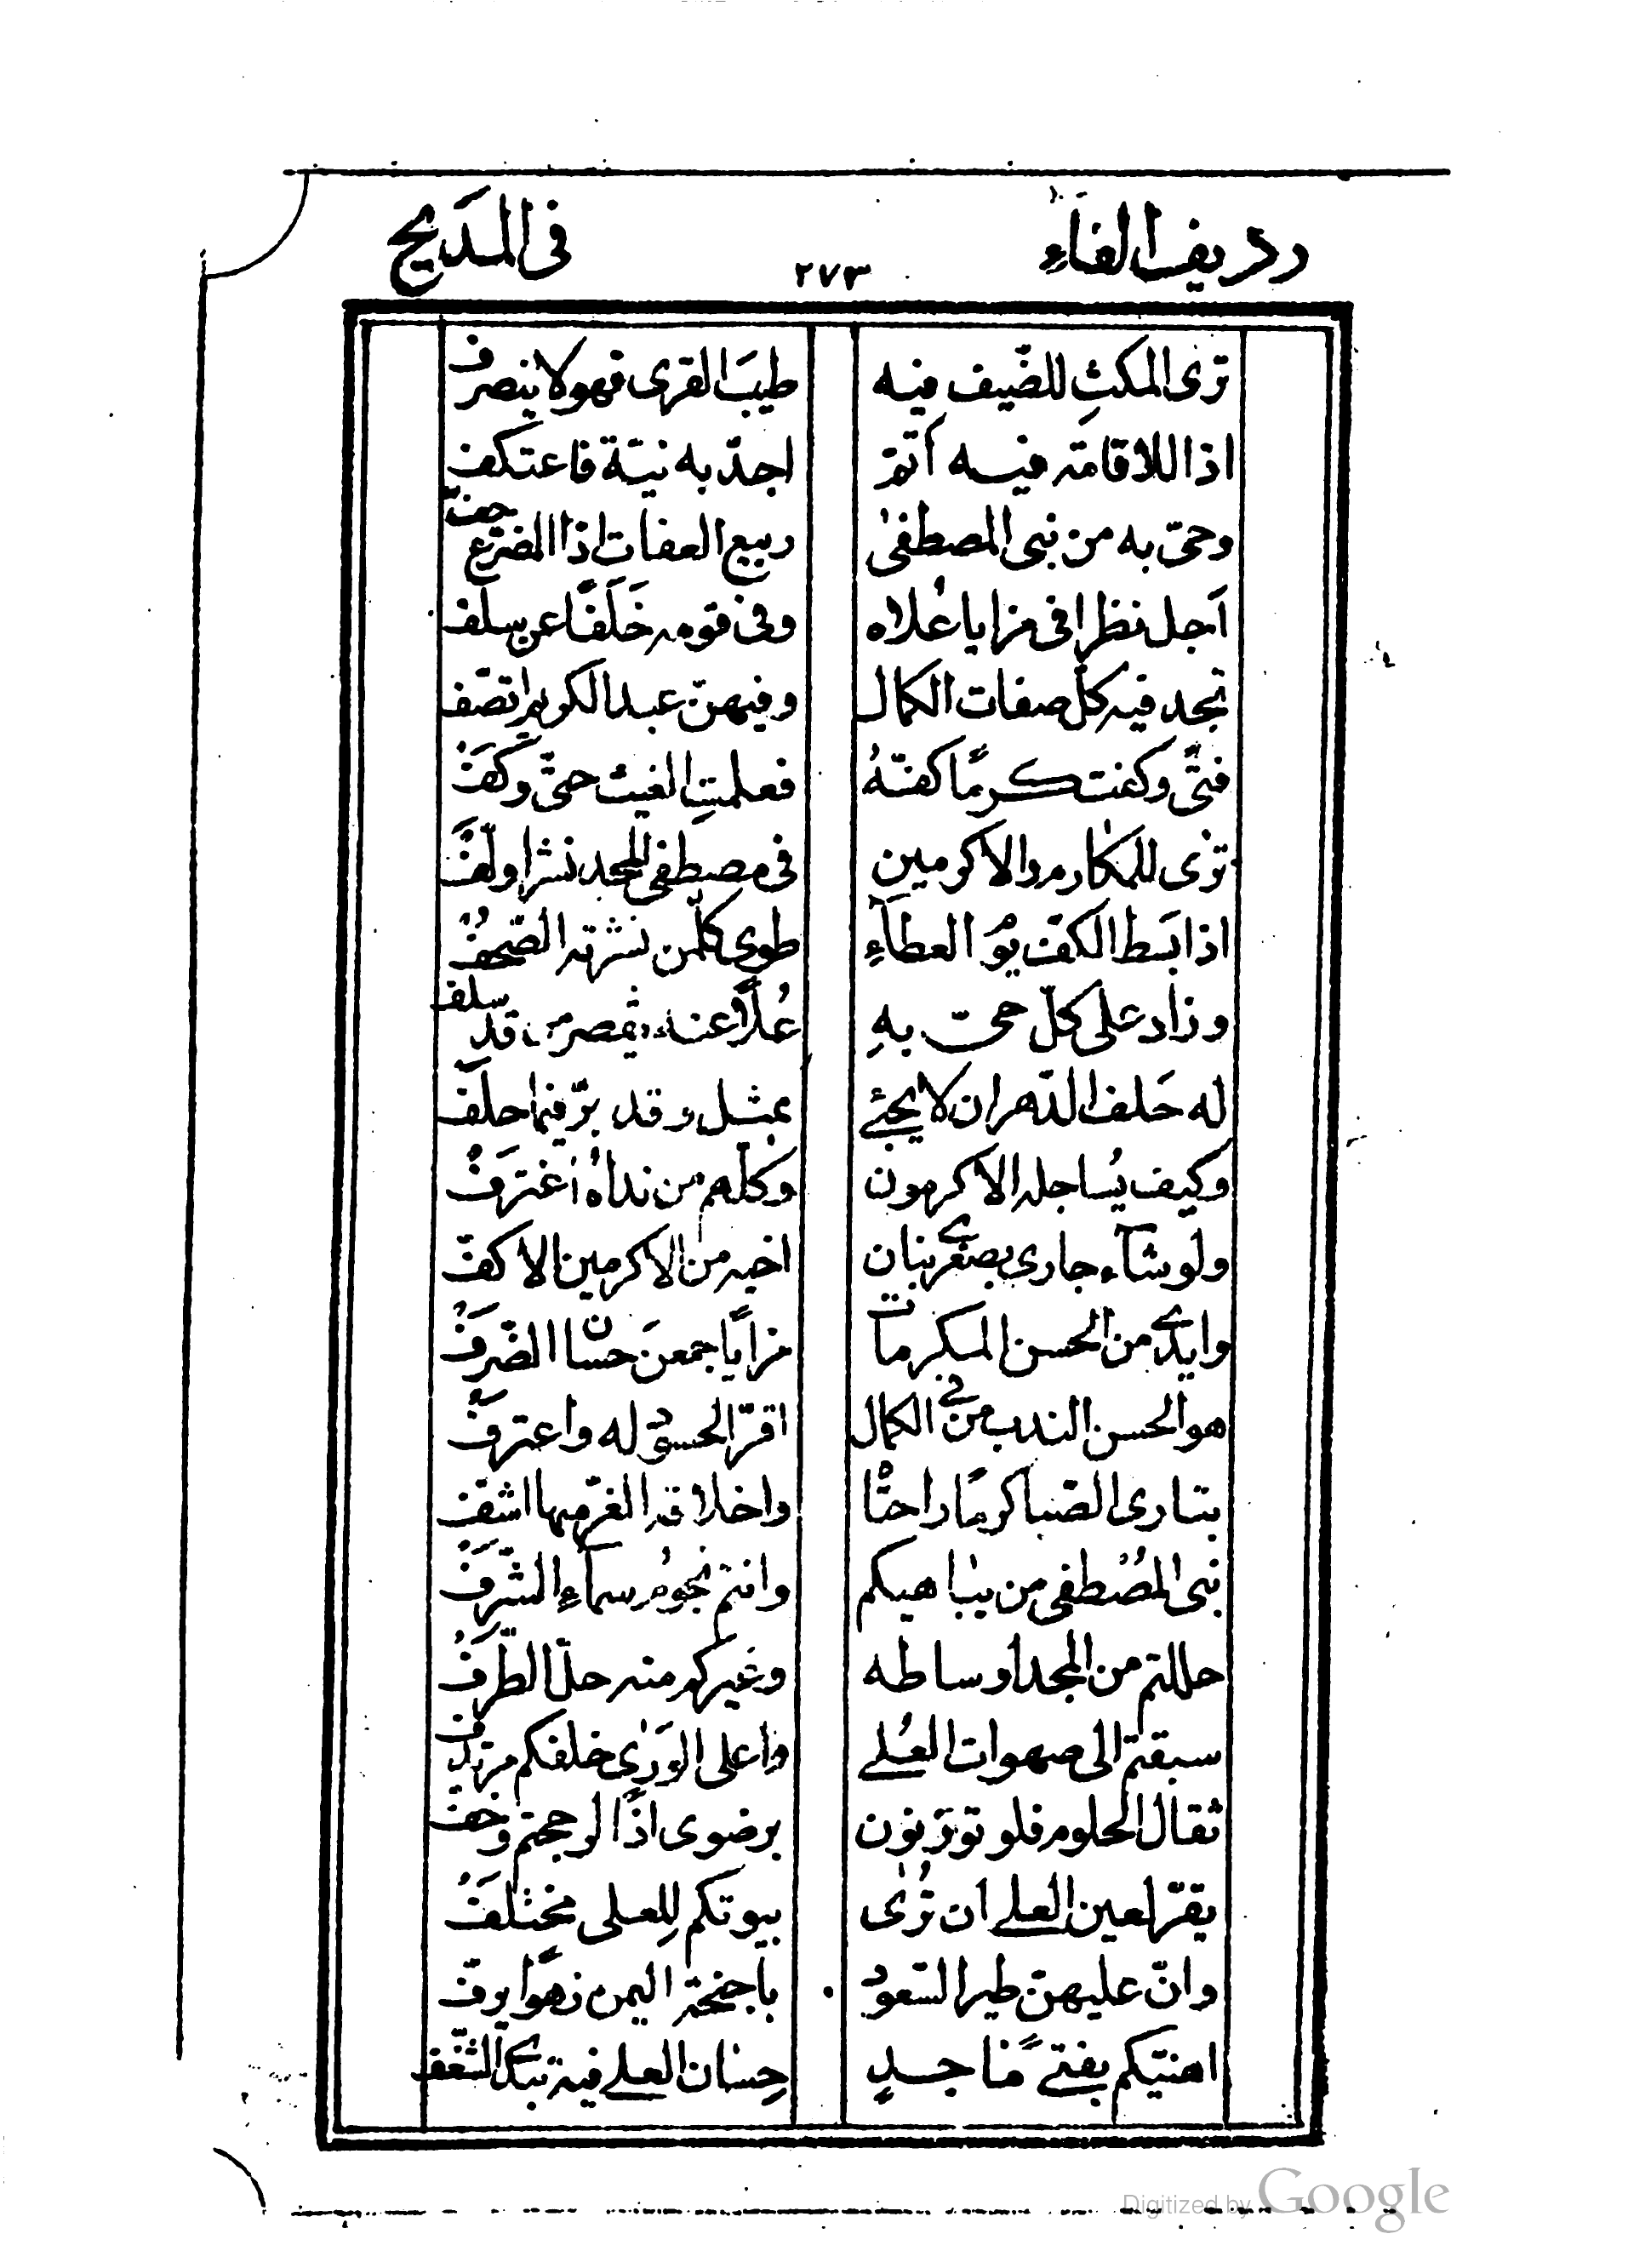 رديف الفاءِ ٢٧٣ في المَديح
ترى المكثِ للضّيف فيه طيبَ القرى فهو لا ينصرف
اذا للاقامة فيه أتمّ اجدّ به نيّة فاعتكف
وحيّ به من بنى المصطفىٰ ربيع العفات اذا الضرع جفّ
اَجل نظرا في مزايا عُلاه وفي قومه خَلَفًا عن سلف
تجد فيه كلّ صفات الكمال وفيهنّ عبد الكريم اتصّف
فتًى وكفت كرمًا كفّهُ فعلمتِ الغيث حتّى وكفَ
ترى للمكارم والاكرمين في مصطفى المجد نشرا ولفّ
اذا بَسط الكفّ يوم العطآءِ طوى كلّمن نشرته الصّحفُ
وزاد على كلّ حيّ بهِ عُلًا عنه يقصر من قد سلف
له حَلف الدّهر ان لا يجئ بمثل وقد برّ فيما حلَف
وكيف يُساجله الاكرمون وكلّهم من نداهُ اغترَف
ولو شآء جارى بصغرى بنان اخيه من الاكرمين الاكفّ
وابدى من الحسن المكرمات مزايًا جمعنَ حسان الضّرف
هو الحسن الندب من في الكمال اقرّ الحسود له واعترف
يتارى الصّبا كرمًا راحتًا واخلاقه الغرّ منها اشفّ
بنى المُصْطفى من يباهيكم وانتم نجومُ سمآءِ الشّرَف
حللتم من المجد اوساطه وغيركم منه حلّ الطرَف
سبقتم الى صهوات العُلے واعلى الوَرىٰ خلفكم مرتدف
ثقال الحلوم فلو توزنون برضوى اذًا لرجحتم وخفّ
يقرّ لعين العلے ان تُرٰى بيوتكم لِلعلى مختلَفُ
وانّ عليهنّ طير السّعود باجنحة اليمن زهوًا يرفّ
اهنّيكم بفتےً مّاجدٍ حِسٰان العلے فيه تبدى الشغف
Digitized by Google